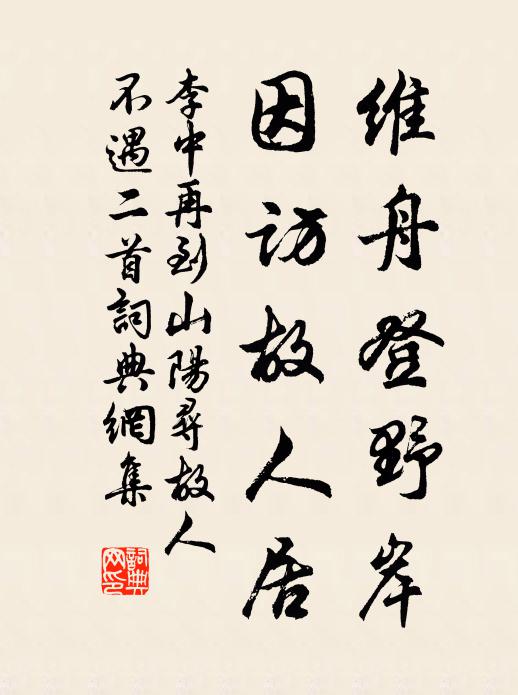 维舟登野岸
因访故人居
李中再到山陽尋故人
不遇二首詞典網集
詞典網印